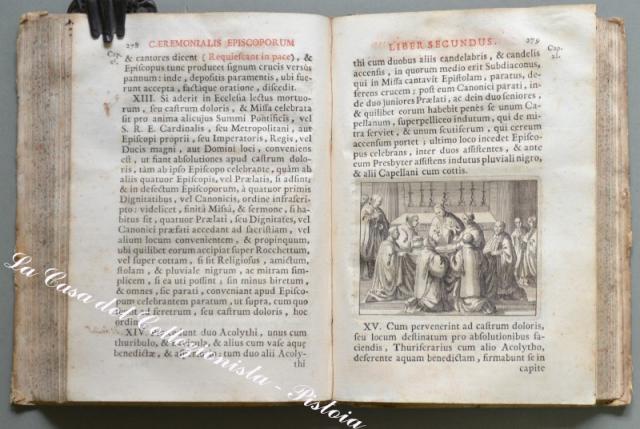 278 CÆREMONIALIS EPISCOPORUM
Cap.
& cantores dicent (Requiescant in pace), &
Episcopus tunc producet signum crucis versùs
pannum: inde, depositis paramentis, ubi fue-
runt accepta, factâque oratione, discedit.
XIII. Si aderit in Ecclesia lectus mortuo-
rum, seu castrum doloris, & Missa celebrata
sit pro anima alicujus Summi Pontificis, vel
S. R. E. Cardinalis, seu Metropolitani, aut
Episcopi proprii, seu Imperatoris, Regis, vel
Ducis magni, aut Domini loci, conveniens
est, ut fiant absolutiones apud castrum dolo-
ris, tàm ab ipso Episcopo celebrante, quàm ab
aliis quatuor Episcopis, vel Prælatis, si adsint;
& in defectum Episcoporum, à quatuor primis
Dignitatibus, vel Canonicis, ordine infrascri-
pto: videlicet, finitâ Missâ, & sermone, si ha-
bitus sit, quatuor Prælati, seu Dignitates, vel
Canonici præfati accedant ad sacristiam, vel
alium locum convenientem, & propinquum,
ubi quilibet eorum accipiat super Rocchettum,
vel super cottam, si sit Religiosus, amictum,
stolam, & pluviale nigrum, ac mitram sim-
plicem, si ea uti possint; sin minus biretum,
& omnes, sic parati, conveniant apud Episco-
pum celebrantem paratum, ut supra, cum quo
ad feretrum, seu castrum doloris, hoc
ordine
XIV. duo Acolythi, unus cum
thuribulo, & naviculâ, & alius cum vase aquæ
benedictæ, & tum duo alii Acoly-
thi
LIBER SECUNDUS. 279
Cap.
thi cum duobus aliis candelabris, & candelis
accensis, in quorum medio erit Subdiaconus,
qui in Missa cantavit Epistolam, paratus, de-
ferens crucem; post eum Canonici parati, in-
de duo juniores Prælati, ac dein duo seniores,
& quilibet eorum habebit penès se unum Ca-
pellanum, superpelliceo indutum, qui de mi-
tra serviet, & unum scutiferum, qui cereum
accensum portet; ultimo loco incedet Episco-
pus celebrans, inter duos assistentes, & ante
eum Presbyter assistens indutus pluviali nigro,
& alii Capellani cum cottis.
XV. Cum pervenerint ad castrum doloris,
seu locum destinatum pro absolutionibus fa-
ciendis, Thuriferarius cum alio Acolytho,
deferente aquam benedictam, firmabunt se in
capite
La Casa del Collezionista - Pistoia